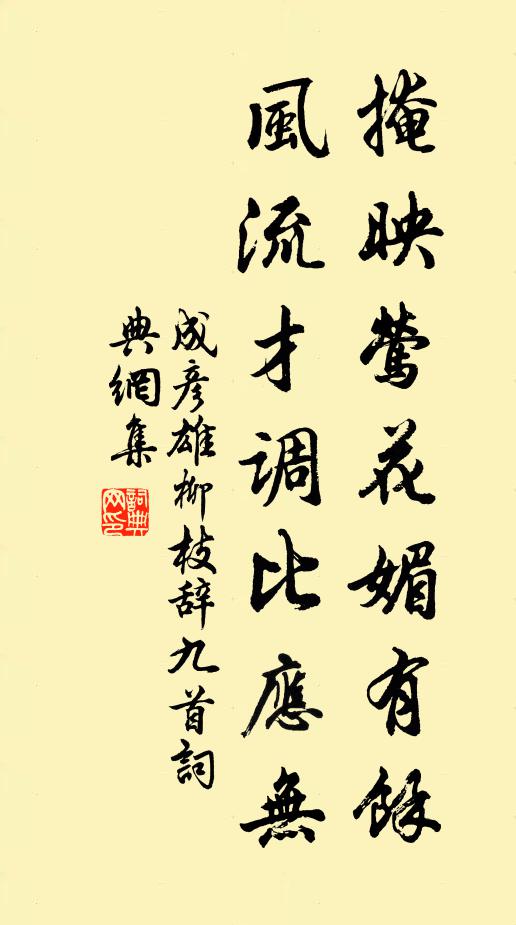 掩映鶯花媚有餘
風流才調比應無
成彦雄柳枝辞九首詞
典網集
詞典网印